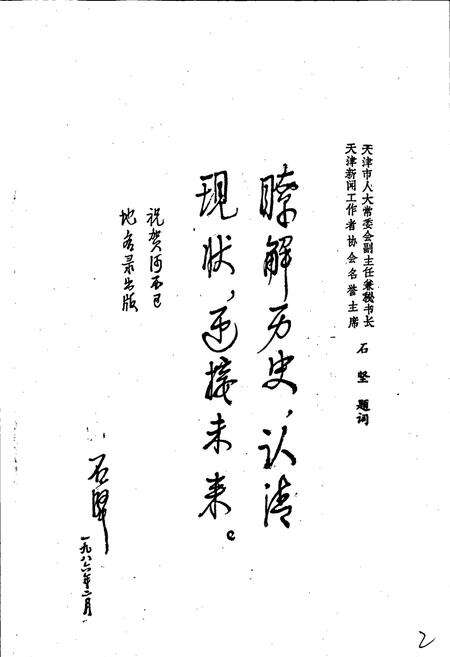 天津市人大常委会副主任兼秘书长
天津新闻工作者协会名誉主席
石坚 题词
瞭解历史，认清
现状，迎接未来。
祝贺河西区
地名录出版
石坚
一九八六年二月
2